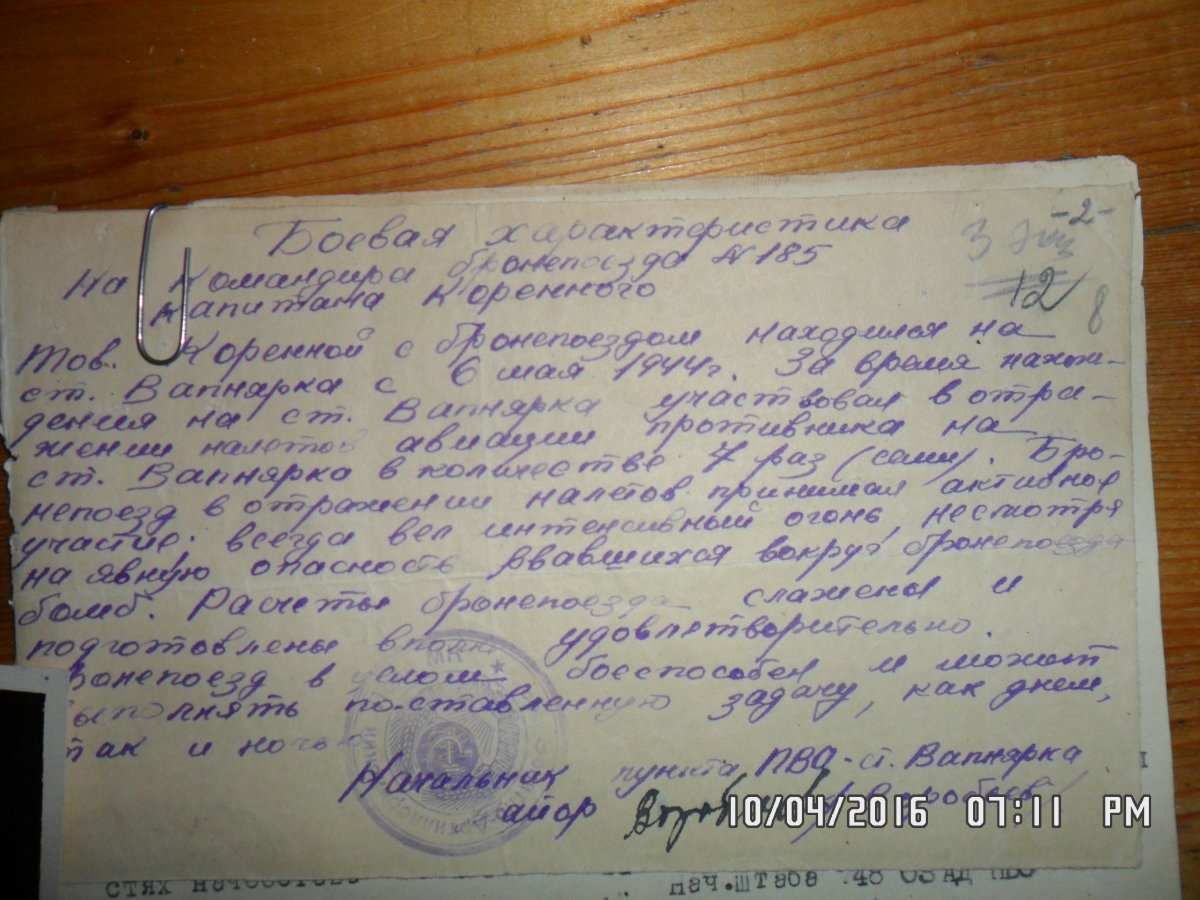 -2-
3 экз
12
8
Боевая характеристика
На командира бронепоезда №185
капитана Коренного
Тов. Коренной с бронепоездом находился на
ст. Вапнярка с 6 мая 1944г. За время нахож-
дения на ст. Вапнярка участвовал в отра-
жении налетов авиации противника на
ст. Вапнярка в количестве 7 раз (семи). Бро-
непоезд в отражении налетов принимал активное
участие. всегда вел интенсивный огонь, несмотря
на явную опасность рвавшихся вокруг бронепоезда
бомб. Расчеты бронепоезда слажены и
подготовлены вполне удовлетворительно.
Бронепоезд в целом боеспособен и может
выполнять поставленную задачу, как днем,
так и ночью
Начальник пункта ПВО-ст. Вапнярка
майор /Воробьев/
10/04/2016 07:11 PM
нач.штаба 148 ОЗАД ПВО